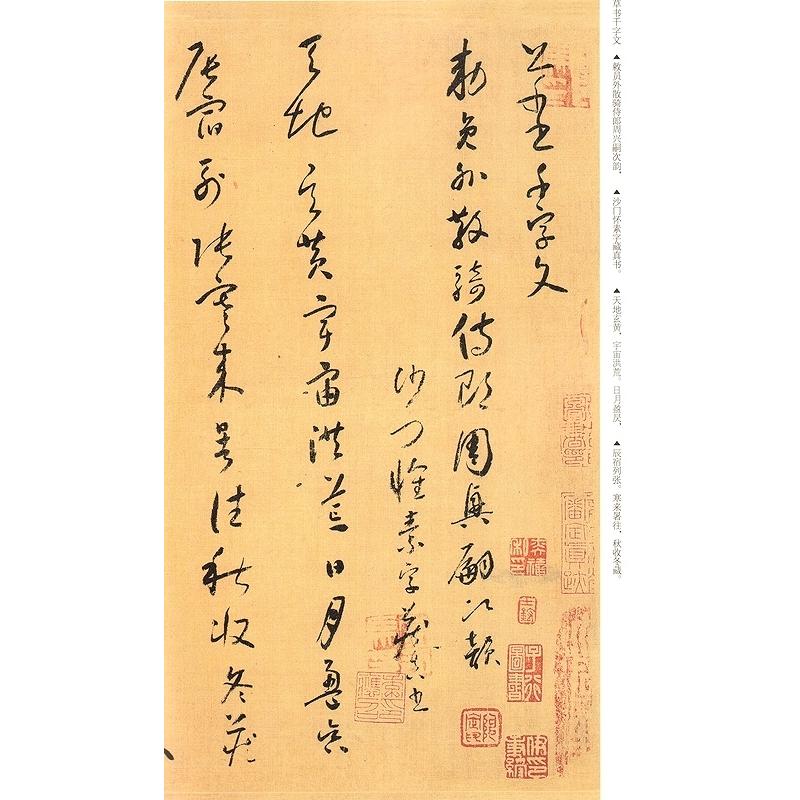 草书千字文 ▲敕员外散骑侍郎周兴嗣次韵。 ▲沙门怀素字藏真书。 ▲天地玄黄，宇宙洪荒。日月盈昃， ▲辰宿列张。寒来暑往，秋收冬藏。
草書千字文
勅員外散騎侍郎周興嗣次韻
沙門懷素字藏真書
天地玄黃宇宙洪荒日月盈昃
辰宿列張寒來暑往秋收冬藏